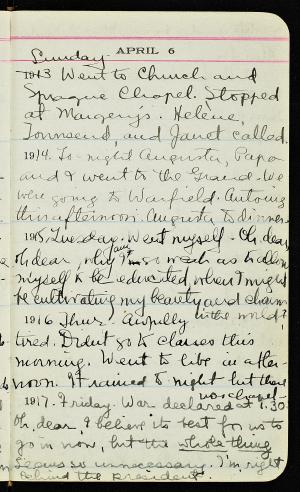 APRIL 6
Sunday
1913 Went to Church and
Sprague Chapel. Stopped
at Margery's. Helene,
Townsend, and Janet called.
1914. To-night Augusta, Papa
and I went to the Grand. We
were going to Warfield. Autoing
this afternoon. Augusta to dinner.
1915 Tuesday. Went myself. Oh, dear
oh dear, why am I so weak as to allow
myself to be educated, when I might
be cultivating my beauty and charm
in the world?
1916 Thur. Awfully
tired. Didn't go to classes this
morning. Went to libe in after-
noon. It rained to-night but there
was chapel.
1917. Friday. War declared at 1.30
Oh, dear, I believe its best for us to
go in now, but the whole thing
seems so unnecessary. I'm right
behind the president.